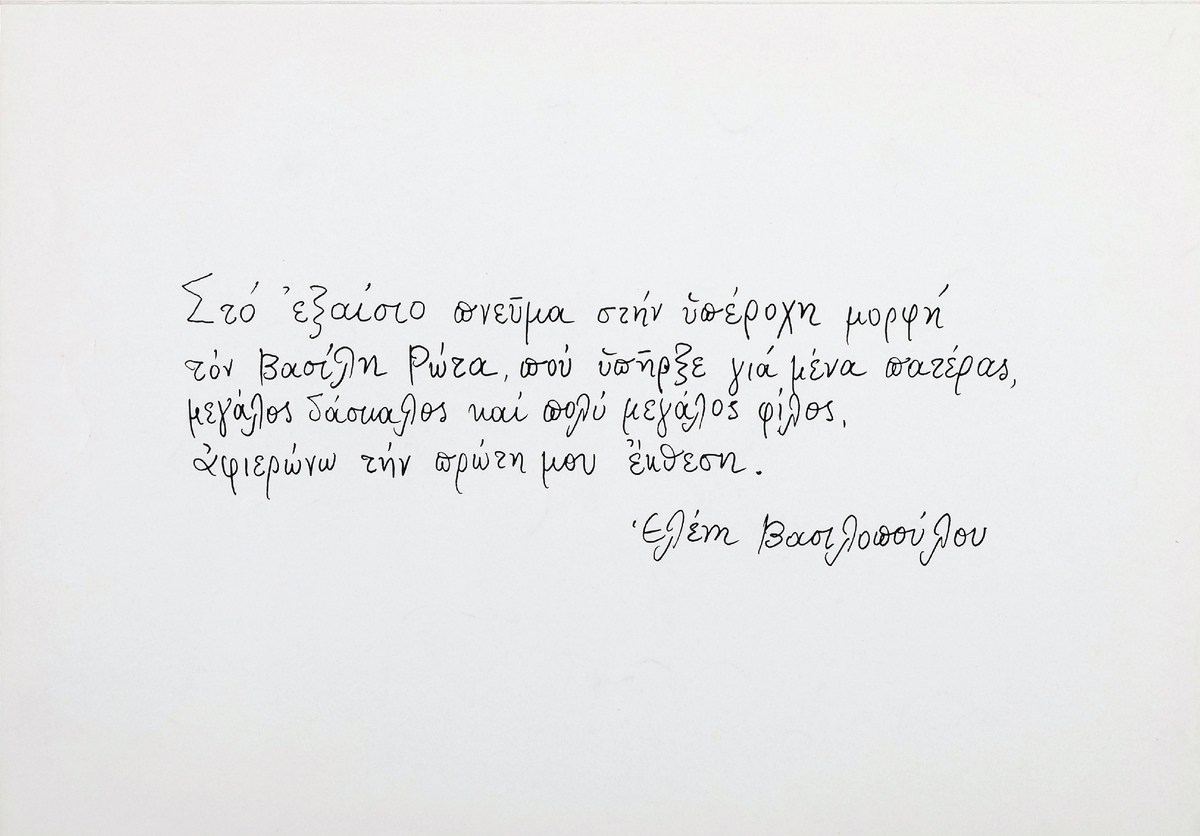 Στό ἐξαίσιο πνεῦμα στήν ὑπέροχη μορφή
τόν Βασίλη Ρώτα, πού ὑπῆρξε γιά μένα πατέρας,
μεγάλος δάσκαλος καί πολύ μεγάλος φίλος,
ἀφιερώνω τήν πρώτη μου ἔκθεση.
Ἑλένη Βασιλοπούλου